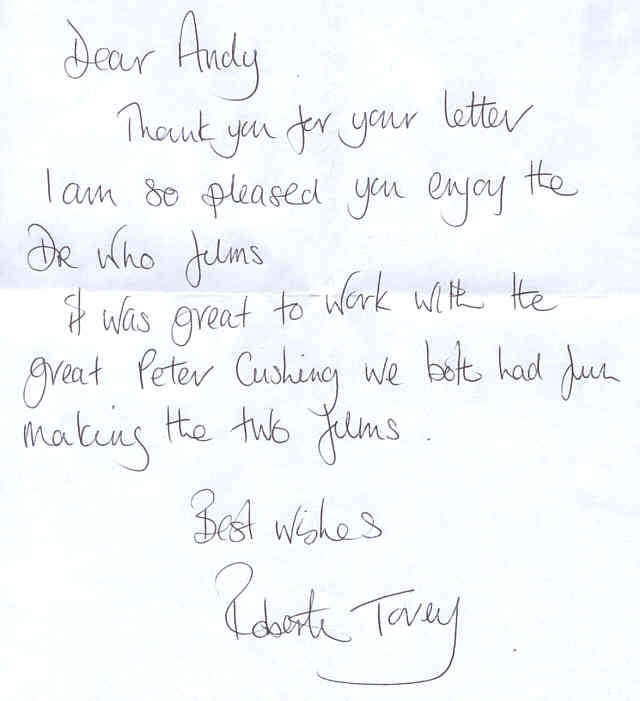 Dear Andy
Thank you for your letter
I am so pleased you enjoy the
DR Who films
It was great to work with the
great Peter Cushing we both had fun
making the two films.
Best wishes
Roberta Tovey